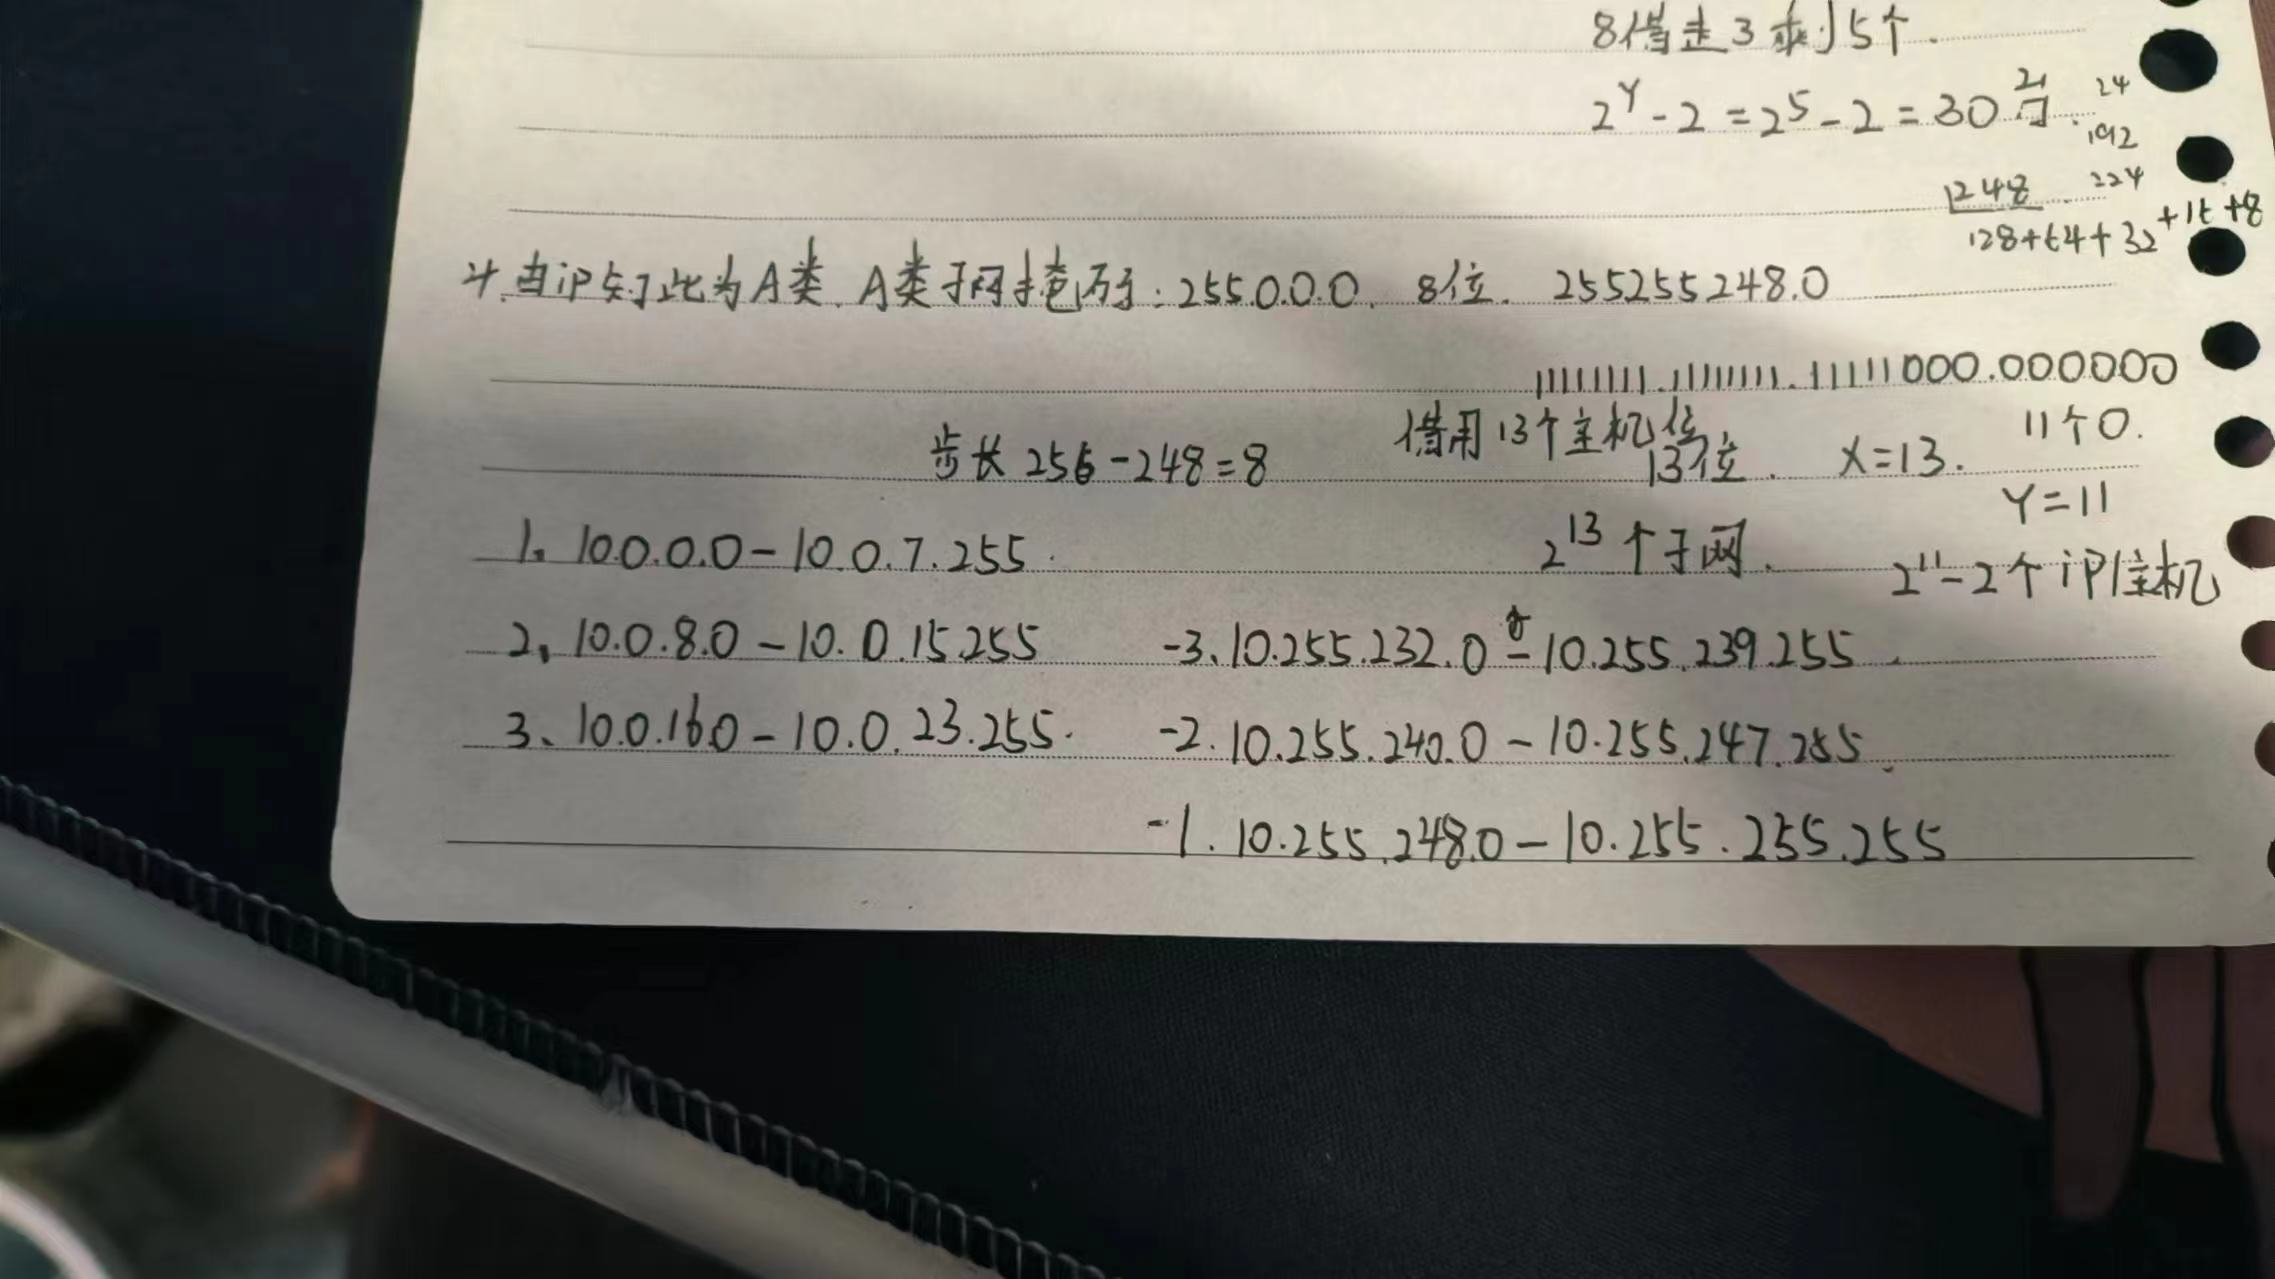 8借走3剩5个.
2^Y-2=2^5-2=30
24
192
224
248
128+64+32+16+8
4.由iP知此为A类.A类子网掩码:255.0.0.0. 8位. 255255248.0
11111111.11111111.11111000.000000
步长 256-248=8
借用13个主机位
13位. X=13. 11个0.
Y=11
1、10.0.0.0-10.0.7.255.
2^13个子网.
2^11-2个iP/主机
2、10.0.8.0-10.0.15.255 -3、10.255.232.0-10.255.239.255.
3、10.0.16.0-10.0.23.255. -2.10.255.240.0-10.255.247.255.
-1.10.255.248.0-10.255.255.255